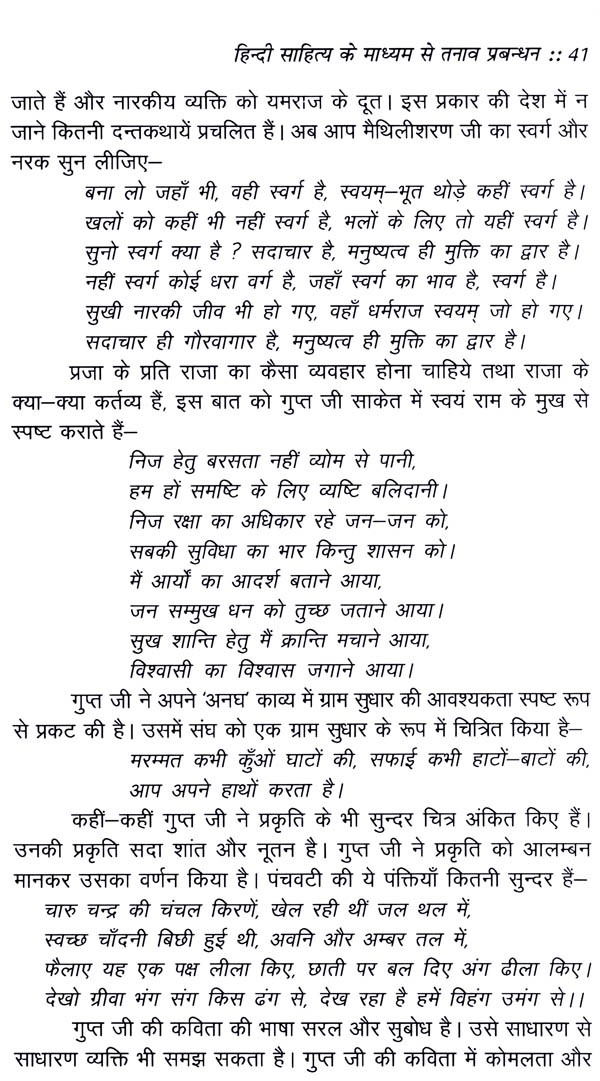 हिन्दी साहित्य के माध्यम से तनाव प्रबन्धन :: 41
जाते हैं और नारकीय व्यक्ति को यमराज के दूत। इस प्रकार की देश में न
जाने कितनी दन्तकथायें प्रचलित हैं। अब आप मैथिलीशरण जी का स्वर्ग और
नरक सुन लीजिए—
बना लो जहाँ भी, वही स्वर्ग है, स्वयम्—भूत थोड़े कहीं स्वर्ग है।
खलों को कहीं भी नहीं स्वर्ग है, भलों के लिए तो यहीं स्वर्ग है।
सुनो स्वर्ग क्या है ? सदाचार है, मनुष्यत्व ही मुक्ति का द्वार है।
नहीं स्वर्ग कोई धरा वर्ग है, जहाँ स्वर्ग का भाव है, स्वर्ग है।
सुखी नारकी जीव भी हो गए, वहाँ धर्मराज स्वयम् जो हो गए।
सदाचार ही गौरवागार है, मनुष्यत्व ही मुक्ति का द्वार है।
प्रजा के प्रति राजा का कैसा व्यवहार होना चाहिये तथा राजा के
क्या—क्या कर्तव्य हैं, इस बात को गुप्त जी साकेत में स्वयं राम के मुख से
स्पष्ट कराते हैं—
निज हेतु बरसता नहीं व्योम से पानी,
हम हों समष्टि के लिए व्यष्टि बलिदानी।
निज रक्षा का अधिकार रहे जन—जन को,
सबकी सुविधा का भार किन्तु शासन को।
मैं आर्यों का आदर्श बताने आया,
जन सम्मुख धन को तुच्छ जताने आया।
सुख शान्ति हेतु मैं क्रान्ति मचाने आया,
विश्वासी का विश्वास जगाने आया।
गुप्त जी ने अपने 'अनघ' काव्य में ग्राम सुधार की आवश्यकता स्पष्ट रूप
से प्रकट की है। उसमें संघ को एक ग्राम सुधार के रूप में चित्रित किया है—
मरम्मत कभी कुँओं घाटों की, सफाई कभी हाटों—बाटों की,
आप अपने हाथों करता है।
कहीं—कहीं गुप्त जी ने प्रकृति के भी सुन्दर चित्र अंकित किए हैं।
उनकी प्रकृति सदा शांत और नूतन है। गुप्त जी ने प्रकृति को आलम्बन
मानकर उसका वर्णन किया है। पंचवटी की ये पंक्तियाँ कितनी सुन्दर हैं—
चारु चन्द्र की चंचल किरणें, खेल रही थीं जल थल में,
स्वच्छ चाँदनी बिछी हुई थी, अवनि और अम्बर तल में,
फैलाए यह एक पक्ष लीला किए, छाती पर बल दिए अंग ढीला किए।
देखो ग्रीवा भंग संग किस ढंग से, देख रहा है हमें विहंग उमंग से।।
गुप्त जी की कविता की भाषा सरल और सुबोध है। उसे साधारण से
साधारण व्यक्ति भी समझ सकता है। गुप्त जी की कविता में कोमलता और